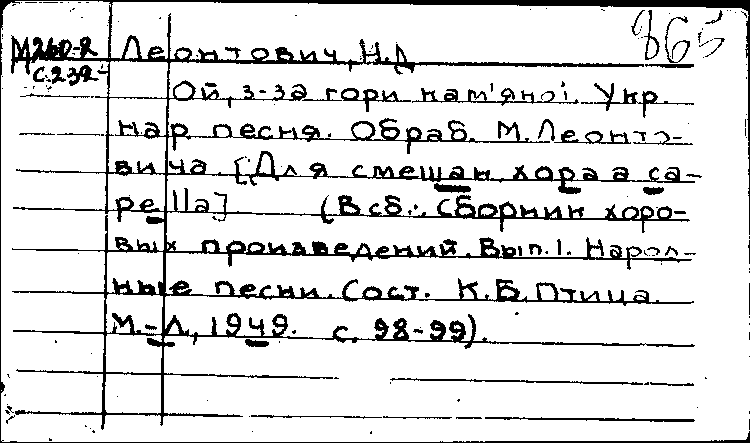 865
М260-2 Леонтович, Н.Д
с.232-
Ой, з-за гори кам'яної. Укр.
нар. песня. Обраб. М.Леонто-
вича. [Для смешан. хора а са-
pella] (В сб.: Сборник хоро-
вых произведений. Вып.1. Народ-
ные песни. Сост. К.Б.Птица.
М.-Л, 1949. с. 98-99).